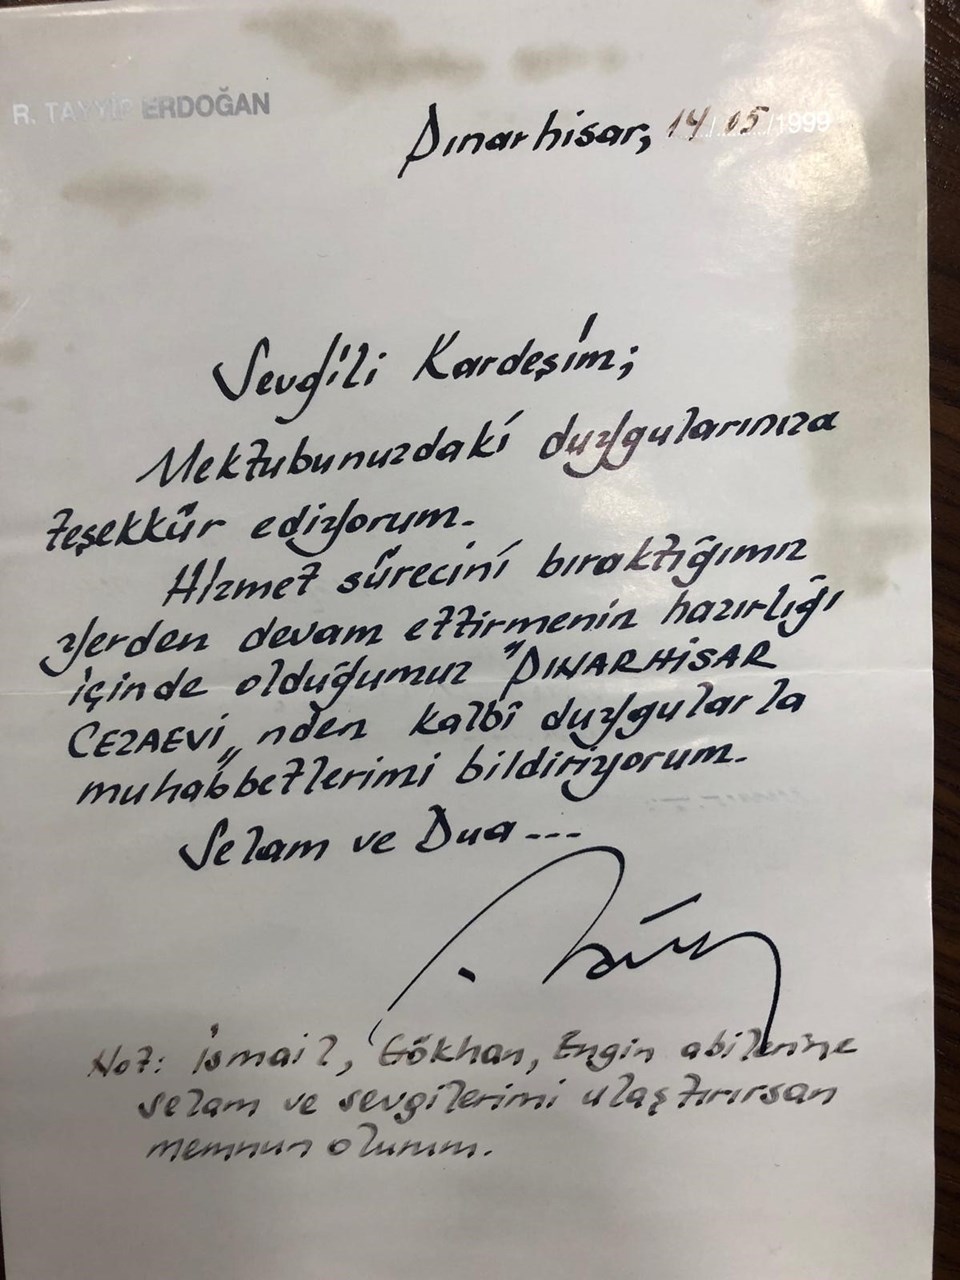 R. TAYYİP ERDOĞAN
Pınarhisar, 14/05/1999
Sevgili Kardeşim;
Mektubunuzdaki duygularınıza
teşekkür ediyorum.
Hizmet sürecini bıraktığımız
yerden devam ettirmenin hazırlığı
içinde olduğumuz "PINARHİSAR
CEZAEVİ„nden kalbî duygularla
muhabbetlerimi bildiriyorum.
Selam ve Dua---
Not: İsmail, Gökhan, Engin abilerine
selam ve sevgilerimi ulaştırırsan
memnun olurum.